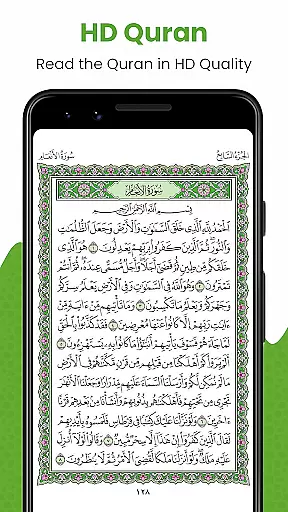 HD Quran
Read the Quran in HD Quality
الجُزْءُ السَّابِعُ سُورَةُ الأَنْعَامِ
سُورَةُ الأَنْعَامِ
بِسْمِ ٱللَّهِ ٱلرَّحْمَٰنِ ٱلرَّحِيمِ
ٱلْحَمْدُ لِلَّهِ ٱلَّذِى خَلَقَ ٱلسَّمَٰوَٰتِ وَٱلْأَرْضَ وَجَعَلَ ٱلظُّلُمَٰتِ
وَٱلنُّورَ ۖ ثُمَّ ٱلَّذِينَ كَفَرُوا۟ بِرَبِّهِمْ يَعْدِلُونَ ١ هُوَ ٱلَّذِى
خَلَقَكُم مِّن طِينٍ ثُمَّ قَضَىٰٓ أَجَلًا ۖ وَأَجَلٌ مُّسَمًّى عِندَهُۥ ۖ ثُمَّ أَنتُمْ
تَمْتَرُونَ ٢ وَهُوَ ٱللَّهُ فِى ٱلسَّمَٰوَٰتِ وَفِى ٱلْأَرْضِ ۖ يَعْلَمُ سِرَّكُمْ
وَجَهْرَكُمْ وَيَعْلَمُ مَا تَكْسِبُونَ ٣ وَمَا تَأْتِيهِم مِّنْ ءَايَةٍ مِّنْ
ءَايَٰتِ رَبِّهِمْ إِلَّا كَانُوا۟ عَنْهَا مُعْرِضِينَ ٤ فَقَدْ كَذَّبُوا۟ بِٱلْحَقِّ
لَمَّا جَآءَهُمْ ۖ فَسَوْفَ يَأْتِيهِمْ أَنۢبَٰٓؤُا۟ مَا كَانُوا۟ بِهِۦ يَسْتَهْزِءُونَ ٥
أَلَمْ يَرَوْا۟ كَمْ أَهْلَكْنَا مِن قَبْلِهِم مِّن قَرْنٍ مَّكَّنَّٰهُمْ فِى ٱلْأَرْضِ
مَا لَمْ نُمَكِّن لَّكُمْ وَأَرْسَلْنَا ٱلسَّمَآءَ عَلَيْهِم مِّدْرَارًا وَجَعَلْنَا ٱلْأَنْهَٰرَ
تَجْرِى مِن تَحْتِهِمْ فَأَهْلَكْنَٰهُم بِذُنُوبِهِمْ وَأَنشَأْنَا مِنۢ بَعْدِهِمْ قَرْنًا
ءَاخَرِينَ ٦ وَلَوْ نَزَّلْنَا عَلَيْكَ كِتَٰبًا فِى قِرْطَاسٍ فَلَمَسُوهُ بِأَيْدِيهِمْ
لَقَالَ ٱلَّذِينَ كَفَرُوٓا۟ إِنْ هَٰذَآ إِلَّا سِحْرٌ مُّبِينٌ ٧ وَقَالُوا۟ لَوْلَآ أُنزِلَ
عَلَيْهِ مَلَكٌ ۖ وَلَوْ أَنزَلْنَا مَلَكًا لَّقُضِىَ ٱلْأَمْرُ ثُمَّ لَا يُنظَرُونَ ٨
١٢٨